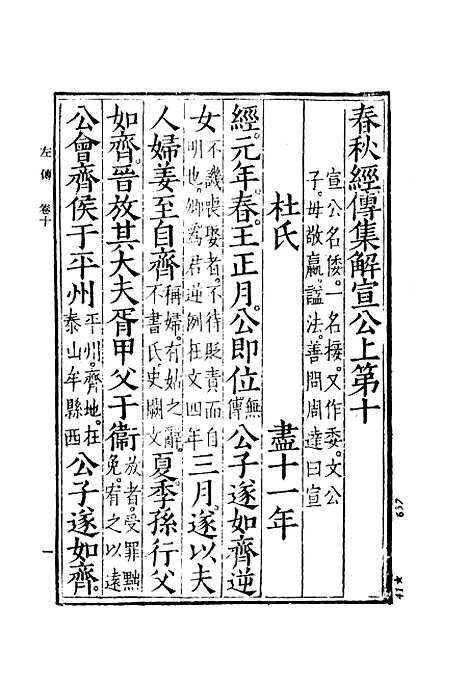 春秋經傳集解宣公上第十
宣公名倭。一名接。又作委。文公
子。毋敬嬴。謚法。善問周達曰宣
杜氏 盡十一年
經。元年。春。王正月。公即位。無傳公子遂如齊逆
女不譏喪娶者。不待貶責而自明也。卿爲君逆例在文四年三月。遂以夫
人婦姜至自齊稱婦。有姑之辭。不書氏史闕文夏。季孫行父
如齊。晉放其大夫胥甲父于衞放者。受罪黜免。宥之以遠
公會齊侯于平州平州。齊地。在泰山牟縣西公子遂如齊。
左傳 卷十 一
637
41★